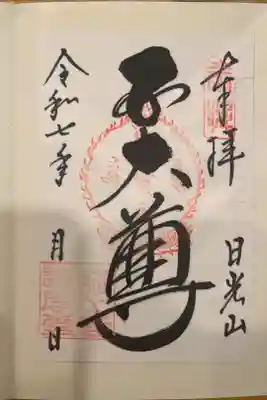 奉拝
日光山
五大尊
令和七年 月 日